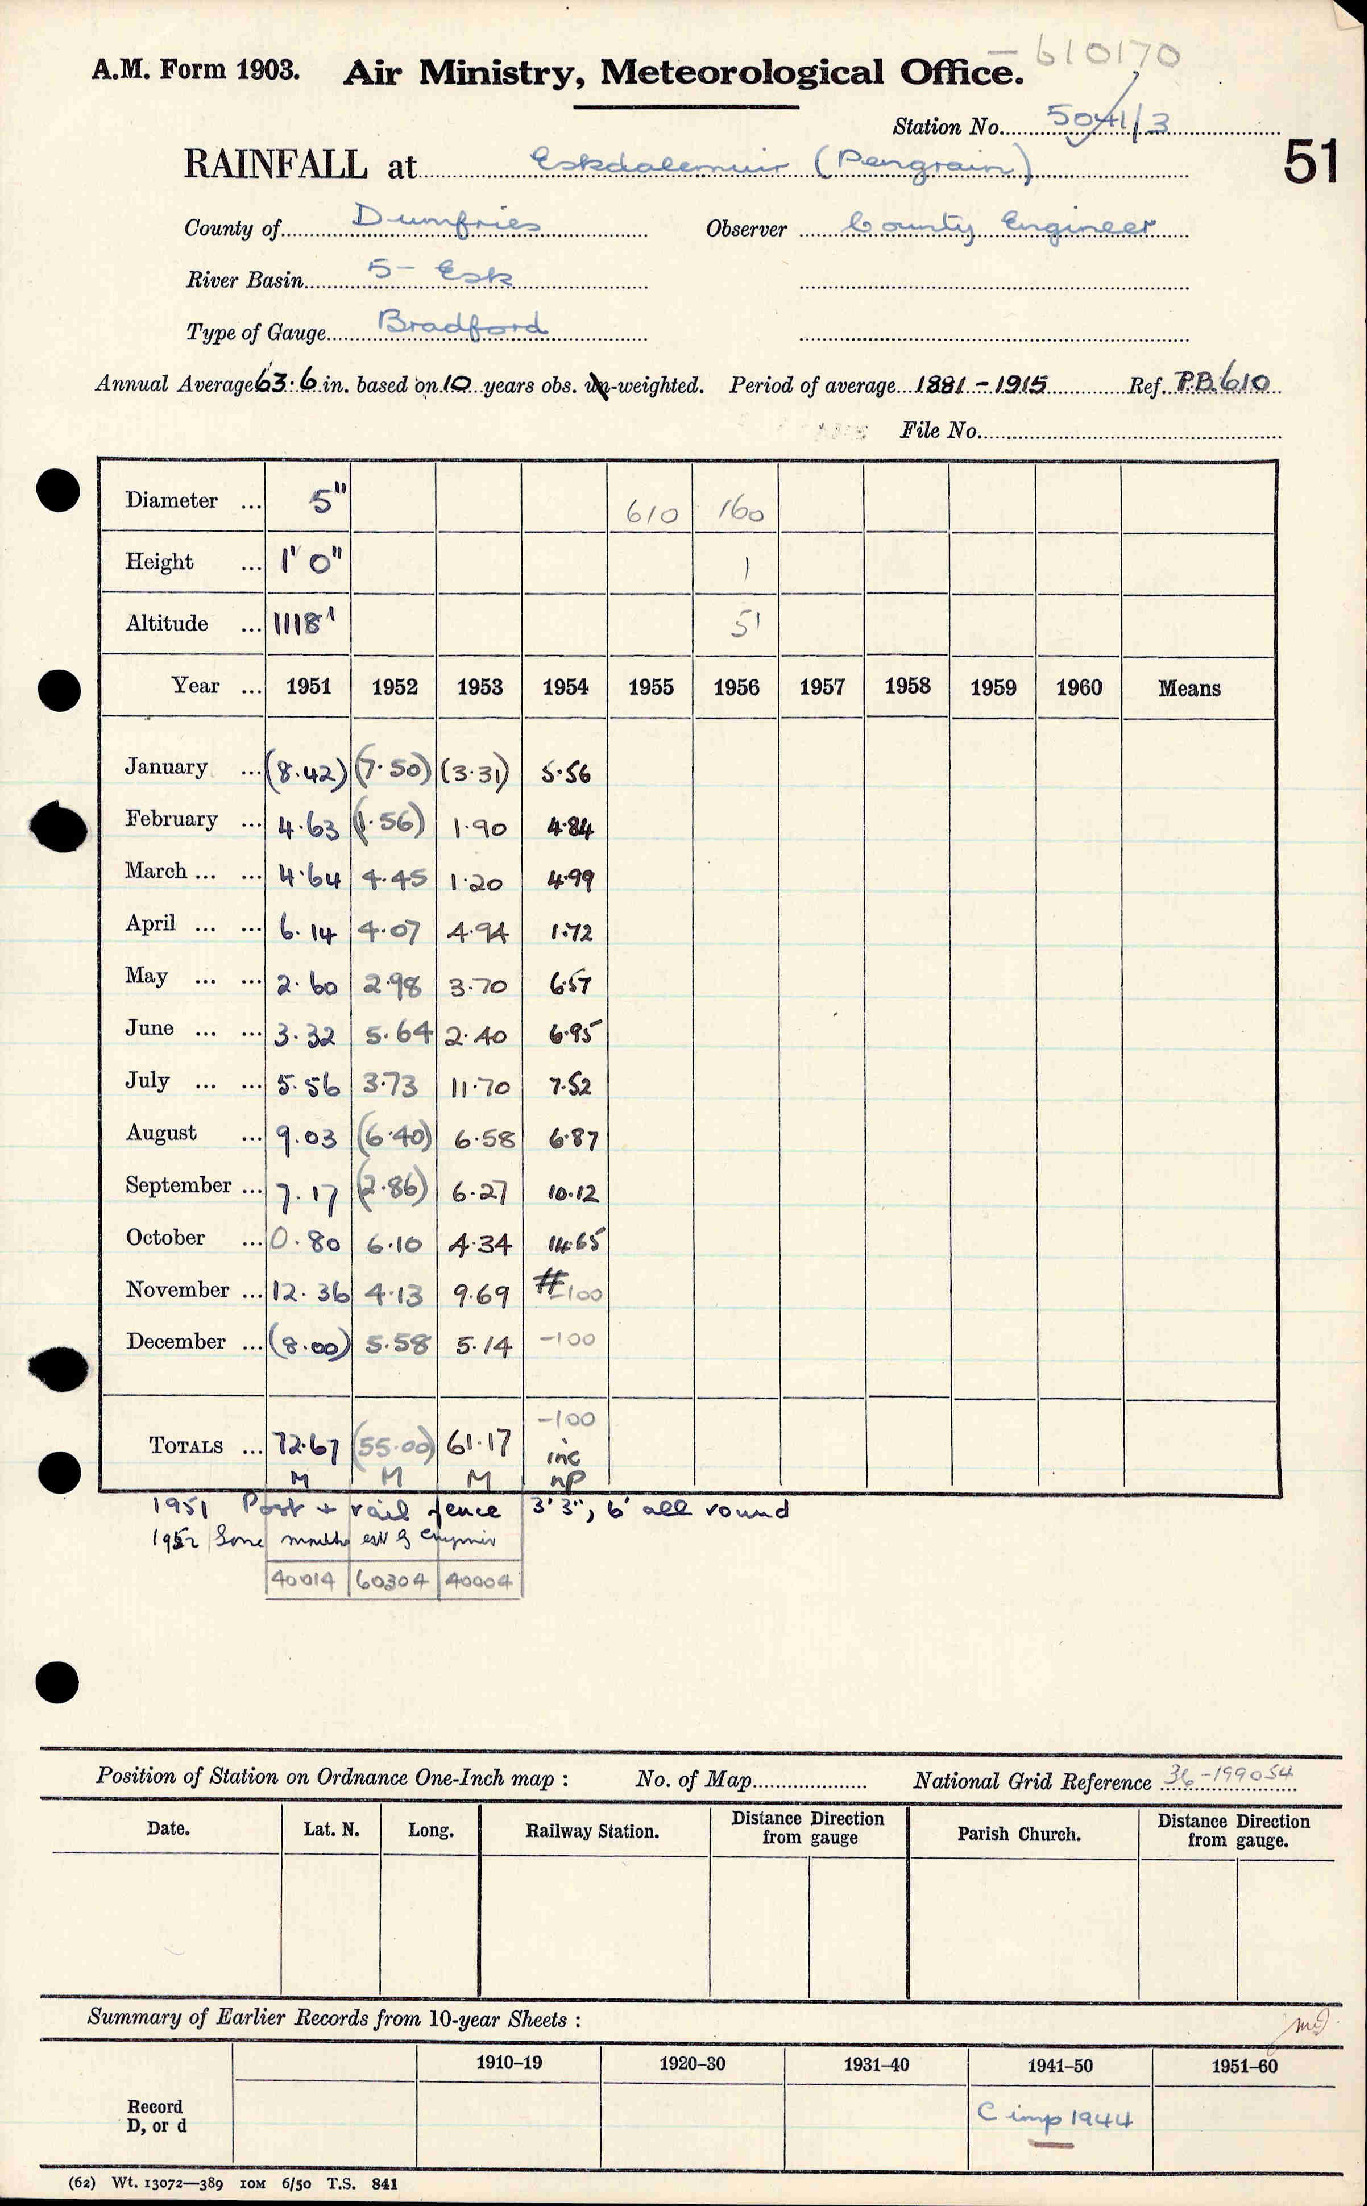 610170
A.M. Form 1903. Air Ministry, Meteorological Office.
Station No. 5041/3
51
RAINFALL at Eskdalemuir (Pengrain)
County of Dumfries Observer County Engineer
River Basin 5 - Esk
Type of Gauge Bradford
Annual Average 63.6 in. based on 10 years obs. un-weighted. Period of average 1881 - 1915 Ref. P.B. 610
File No.
Diameter ... 5" 610 160
Height ... 1' 0" 1
Altitude ... 1118' 51
Year ... 1951 1952 1953 1954 1955 1956 1957 1958 1959 1960 Means
January ... (8.42) (7.50) (3.31) 5.56
February ... 4.63 (1.56) 1.90 4.84
March ... ... 4.64 4.45 1.20 4.99
April ... ... 6.14 4.07 4.94 1.72
May ... ... 2.60 2.98 3.70 6.57
June ... ... 3.32 5.64 2.40 6.95
July ... ... 5.56 3.73 11.70 7.52
August ... 9.03 (6.40) 6.58 6.87
September ... 7.17 (2.86) 6.27 10.12
October ... 0.80 6.10 4.34 14.65
November ... 12.36 4.13 9.69 -100
December ... (8.00) 5.58 5.14 -100
-100
TOTALS ... 72.67 (55.00) 61.17 inc
M M M np
1951 Post + rail fence 3'3", 6' all round
1952 Some months est by
40014 60304 40004
Position of Station on Ordnance One-Inch map : No. of Map National Grid Reference 36-199054
Date. Lat. N. Long. Railway Station. Distance from gauge Direction Parish Church. Distance from gauge. Direction
Summary of Earlier Records from 10-year Sheets :
1910-19 1920-30 1931-40 1941-50 1951-60
Record D, or d C imp 1944
(62) Wt. 13072—389 10M 6/50 T.S. 841